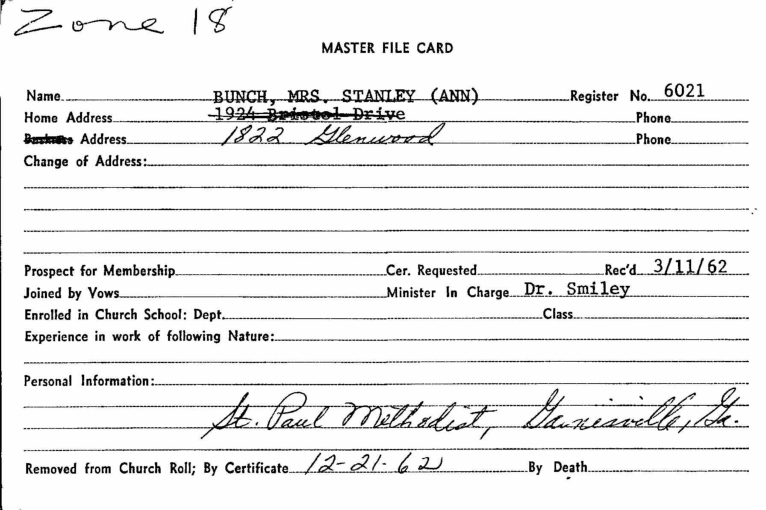 Zone 18
MASTER FILE CARD
Name BUNCH, MRS. STANLEY (ANN) Register No. 6021
Home Address 1924 Bristol Drive Phone
Business Address 1822 Glenwood Phone
Change of Address:
Prospect for Membership Cer. Requested Rec'd 3/11/62
Joined by Vows Minister In Charge Dr. Smiley
Enrolled in Church School: Dept. Class
Experience in work of following Nature:
Personal Information:
St. Paul Methodist, Gainesville, Ga.
Removed from Church Roll; By Certificate 12-21-62 By Death